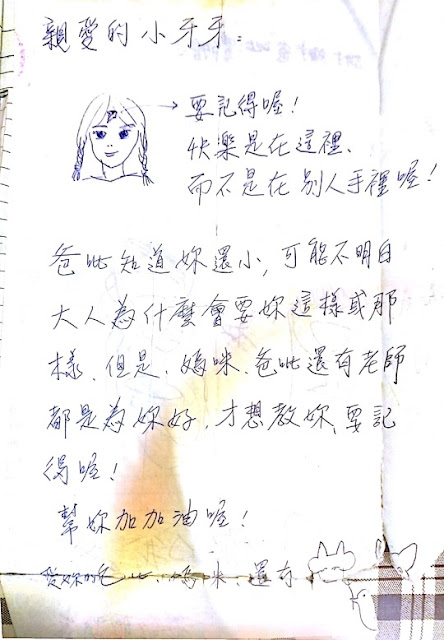 親愛的小牙牙：
要記得喔！
快樂是在這裡、
而不是在別人手裡喔！
爸吡知道妳還小，可能不明白
大人為什麼會要妳這樣或那
樣、但是、媽咪、爸吡還有老師
都是為妳好，才想教妳、要記
得喔！
幫妳加加油喔！
愛妳的爸吡、媽咪、還有